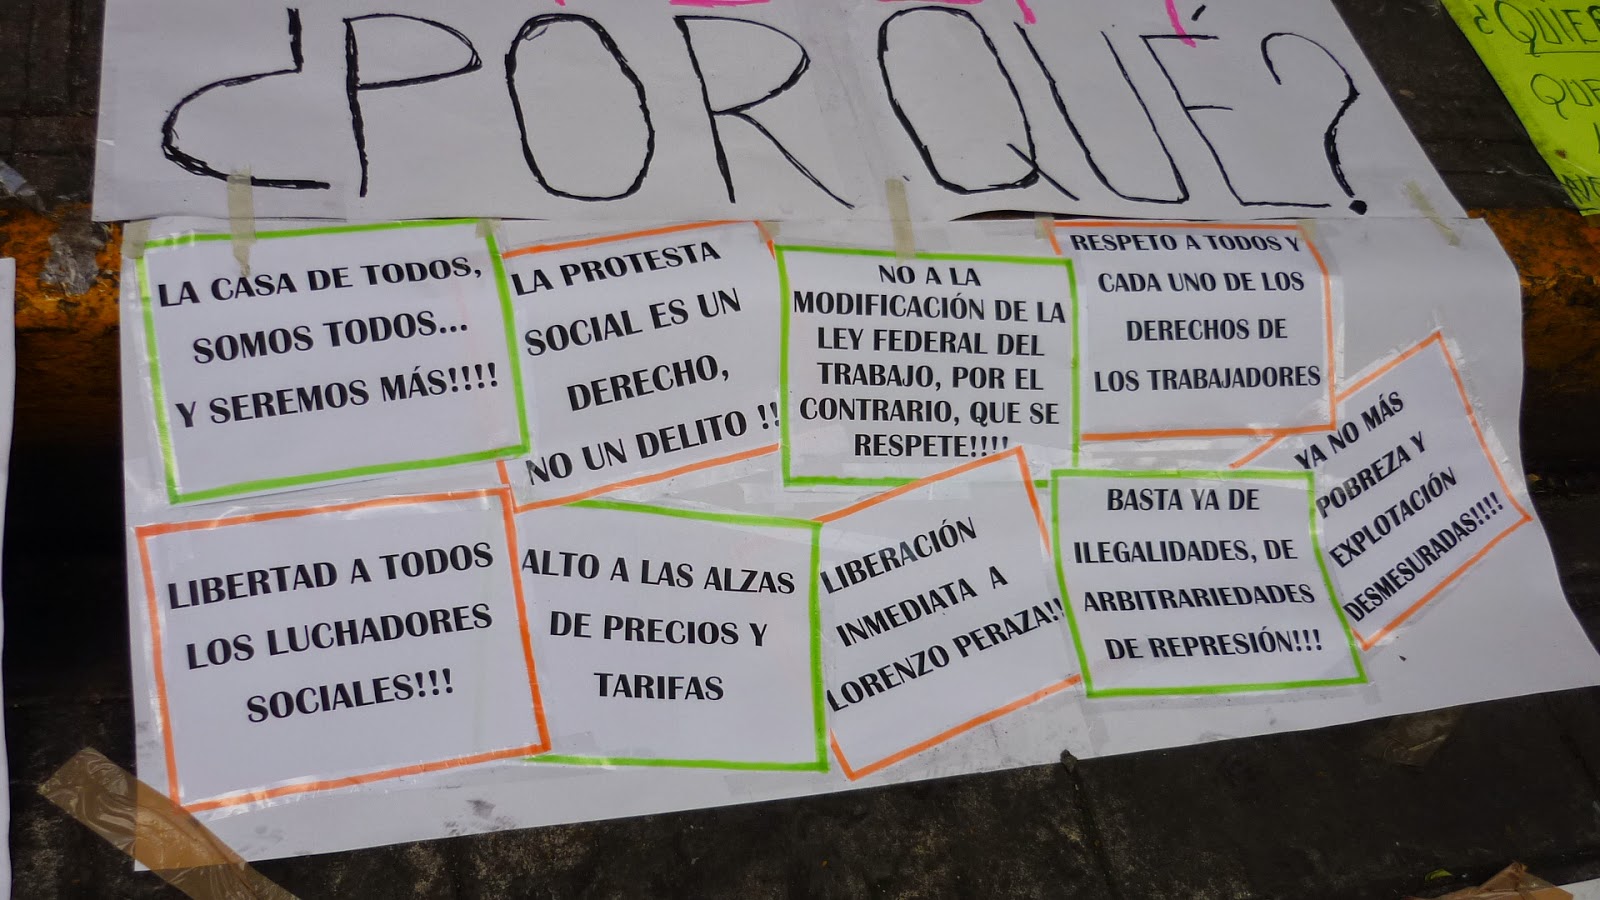 ¿POR QUÉ?
LA CASA DE TODOS,
SOMOS TODOS...
Y SEREMOS MÁS!!!!
LA PROTESTA
SOCIAL ES UN
DERECHO,
NO UN DELITO !!
NO A LA
MODIFICACIÓN DE LA
LEY FEDERAL DEL
TRABAJO, POR EL
CONTRARIO, QUE SE
RESPETE!!!!
RESPETO A TODOS Y
CADA UNO DE LOS
DERECHOS DE
LOS TRABAJADORES
YA NO MÁS
POBREZA Y
EXPLOTACIÓN
DESMESURADAS!!!!
LIBERTAD A TODOS
LOS LUCHADORES
SOCIALES!!!
ALTO A LAS ALZAS
DE PRECIOS Y
TARIFAS
LIBERACIÓN
INMEDIATA A
LORENZO PERAZA!!
BASTA YA DE
ILEGALIDADES, DE
ARBITRARIEDADES
DE REPRESIÓN!!!